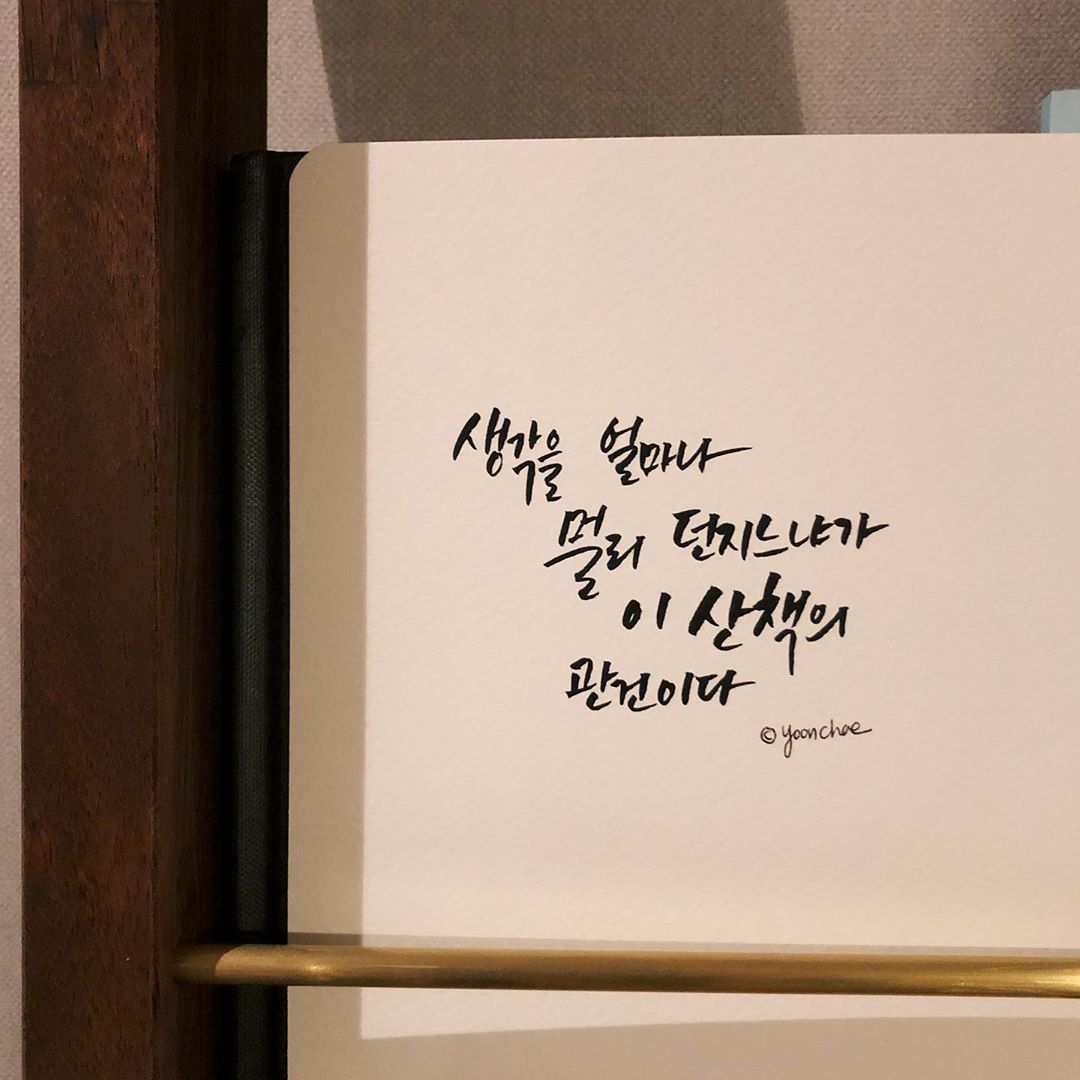 생각을 얼마나
멀리 던지느냐가
이 산책의
관건이다
© yoonchae